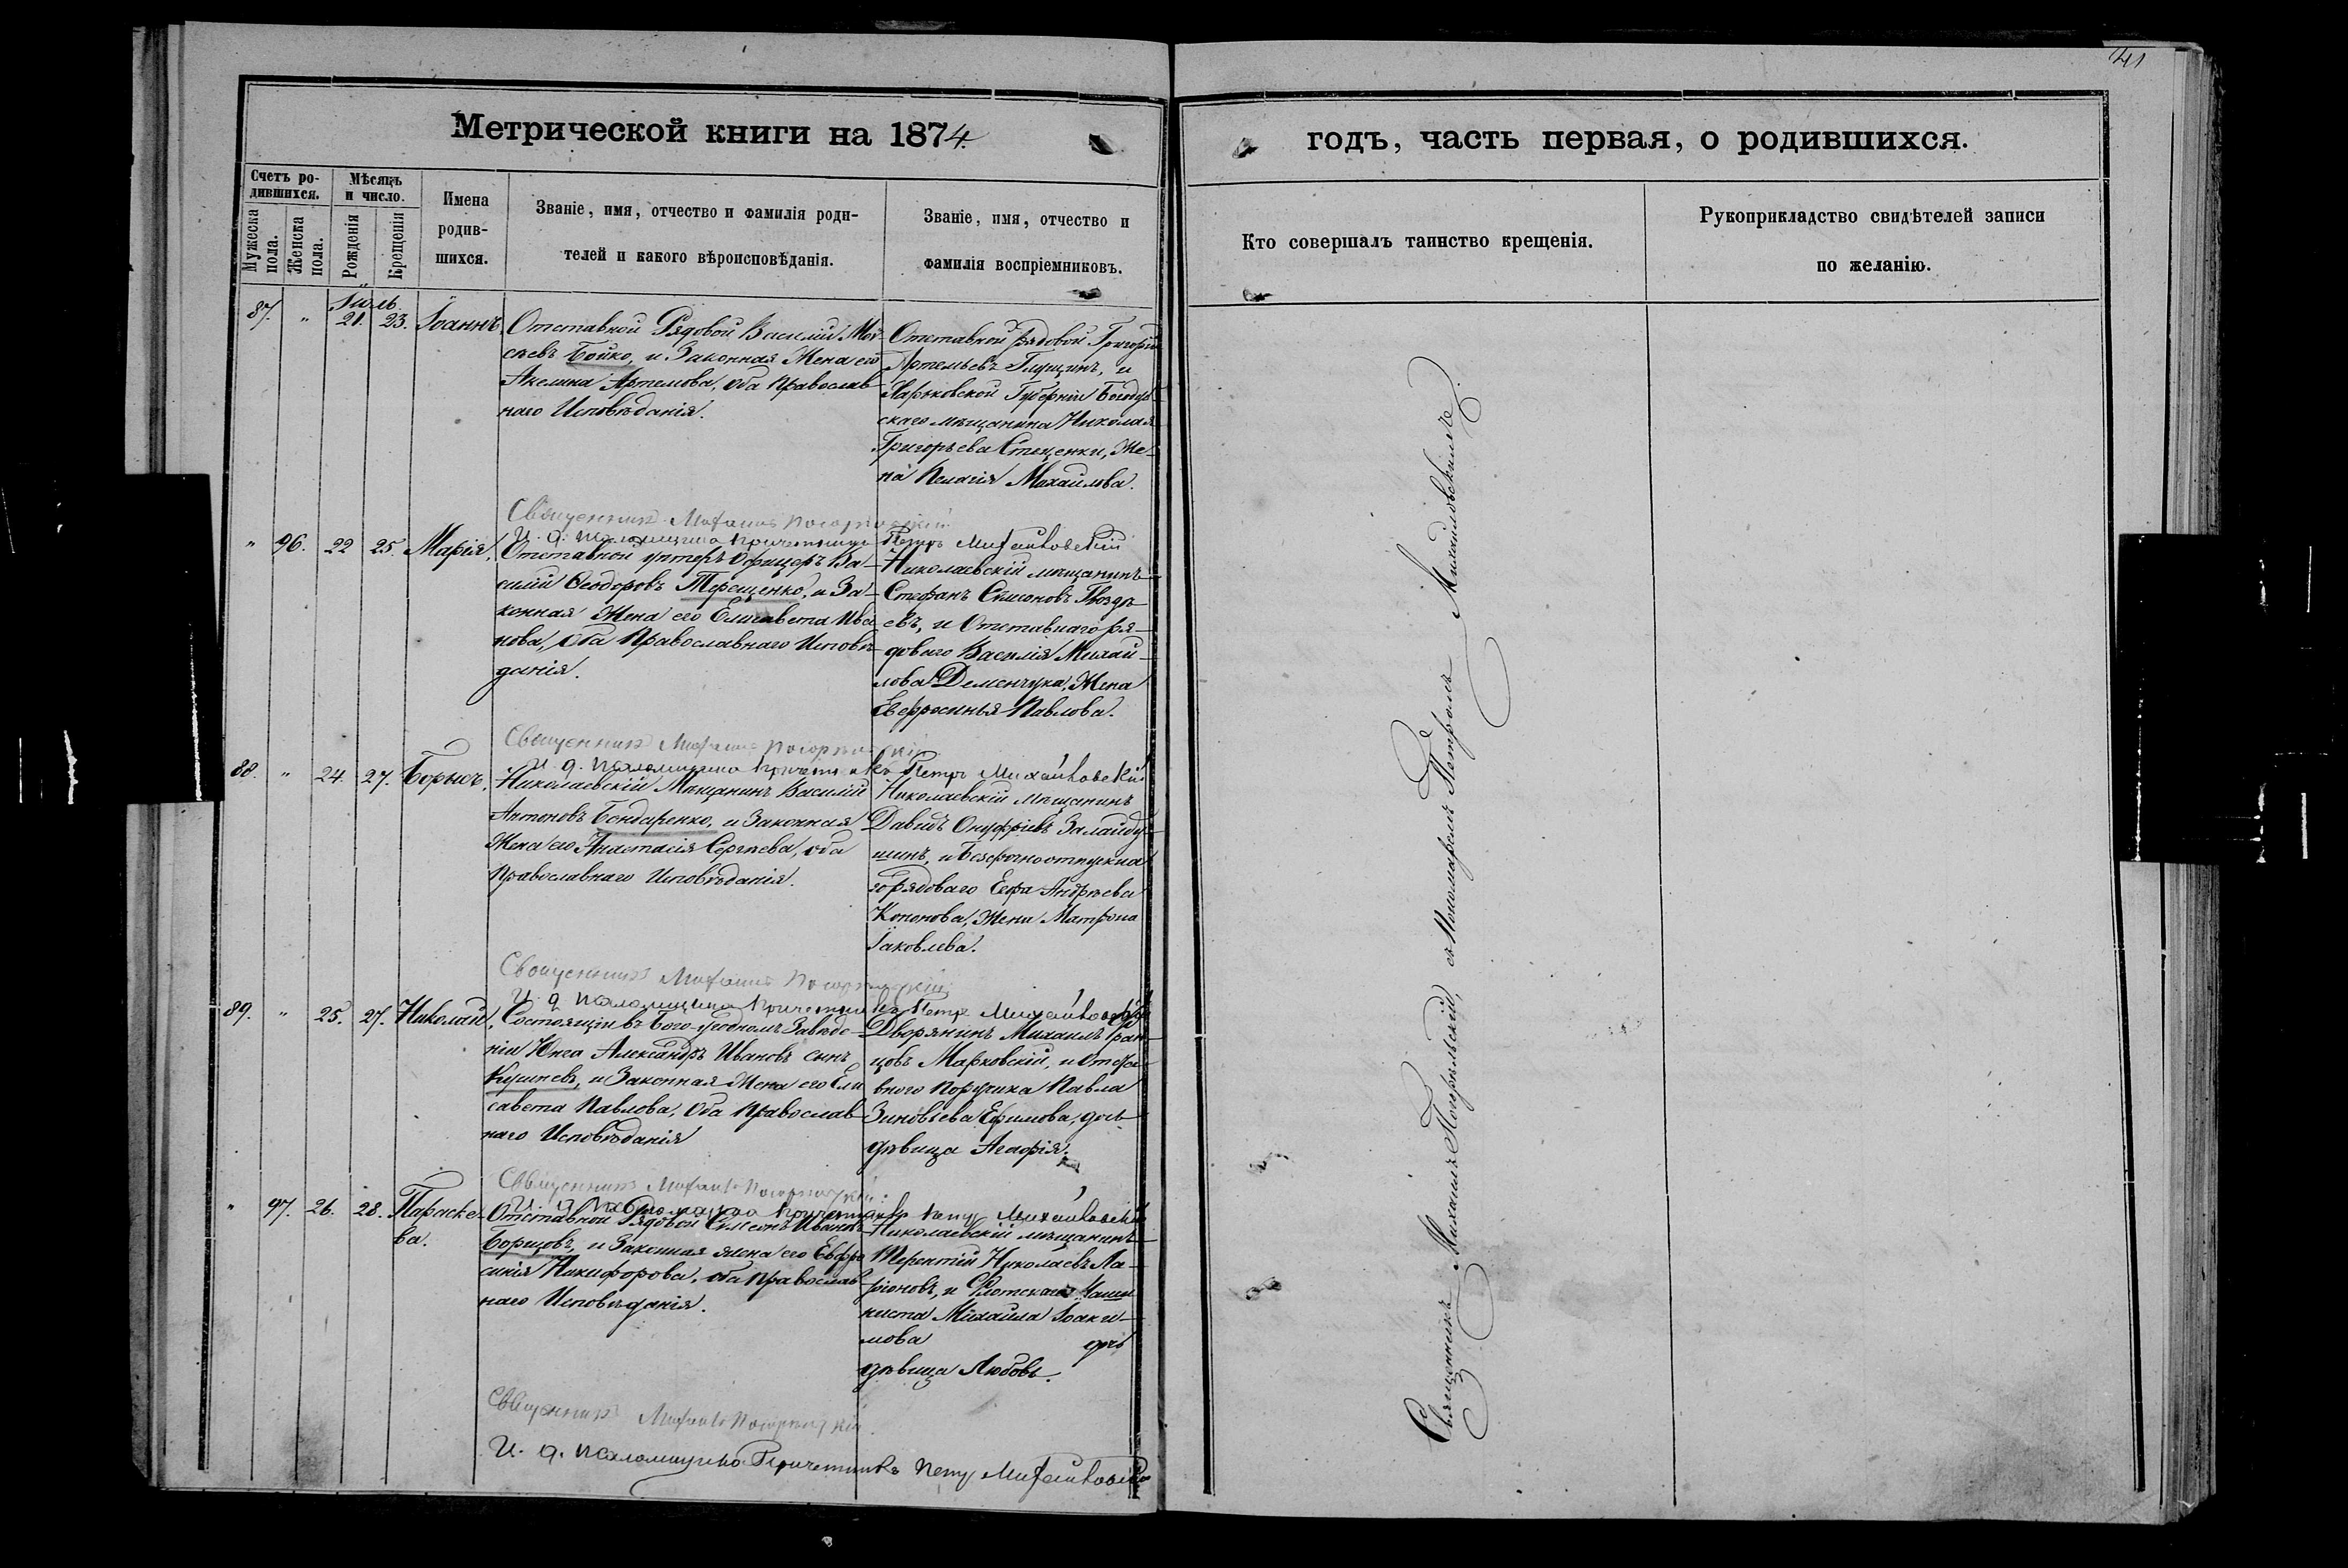 41
Метрической книги на 1874
годъ, часть первая, о родившихся.
Счетъ ро-
дившихся.
Мужеска
пола.
Женска
пола.
Мѣсяцъ
и число.
Рожденія
Крещенія
Имена
родив-
шихся.
Званіе, имя, отчество и фамилія роди-
телей и какого вѣроисповѣданія.
Званіе, имя, отчество и
фамилія воспріемниковъ.
Кто совершалъ таинство крещенія.
Рукоприкладство свидѣтелей записи
по желанію.
Іюль
87. " 21. 23. Іоаннъ.
Отставной Рядовой Василій Мои-
сѣевъ Бойко, и Законная Жена его
Акелина Артемова, оба Православ-
наго Исповѣданія.
Отставной рядовой Григорій
Артемьевъ Глущинъ, и
Харьковской Губерніи Богоду-
скаго мѣщанина Николая
Григорьева Стеценки, Же-
на Пелагія Михайлова.
Священникъ Михаилъ Погорѣльскій
И. д. псаломщика Причетникъ Петръ Михайловскій
" 96. 22 25. Марія.
Отставной унтеръ Офицеръ Ва-
силій Ѳеодоровъ Терещенко, и За-
конная Жена его Елисавета Ива-
нова, Оба Православнаго Исповѣ-
данія.
Николаевскій мѣщанинъ
Стефанъ Симоновъ Гвозде-
евъ, и Отставнаго ря-
доваго Василія Михай-
лова Деменчука, Жена
Евфросинья Павлова.
Священникъ Михаилъ Погорѣльскій
И. д. Псаломщика Причетникъ Петръ Михайловскій
88. " 24. 27. Борисъ.
Николаевскій Мѣщанинъ Василій
Антоновъ Бондаренко, и Законная
Жена его Анастасія Сергѣева, оба
Православнаго Исповѣданія.
Николаевскій мѣщанинъ
Давидъ Онуфріевъ Залайду-
шинъ, и Безсрочноотпускна-
го рядоваго Андрѣева
Кононова, Жена Матрона
Іаковлева.
Священникъ Михаилъ Погорѣльскій
И. д. псаломщика Причетникъ Петръ Михайловскій
89. " 25. 27. Николай.
Состоящій въ Бого-угодномъ Заведе-
ніи Юнга Александръ Ивановъ сынъ
Кушневъ, и Законная Жена его Ели
савета Павлова, Оба Православ-
наго Исповѣданія
Дворянинъ Михаилъ Фран-
цовъ Марковскій, и Отста-
внаго Поручика Павла
Зиновьева Ефимова, дочь
дѣвица Агафія.
Священникъ Михаилъ Погорѣльскій
И. д. псаломщика Причетникъ Петръ Михайловскій
" 97. 26. 28. Параске-
ва.
Отставной Рядовой Симеонъ Ивановъ
Борщовъ, и Законная жена его Евфро
синія Никифорова, оба Православ-
наго Исповѣданія.
Николаевскій мѣщанинъ
Терентій Николаевъ Ла-
ріоновъ, и Флотскаго Маши
ниста Михаила Іоаки-
мова дочь
дѣвица Любовь.
Священникъ Михаилъ Погорѣльскій.
И. д. псаломщика Причетникъ Петръ Михайловскій
Священникъ Михаилъ Погорѣльскій, съ Пономаремъ Петромъ Михайловскимъ.